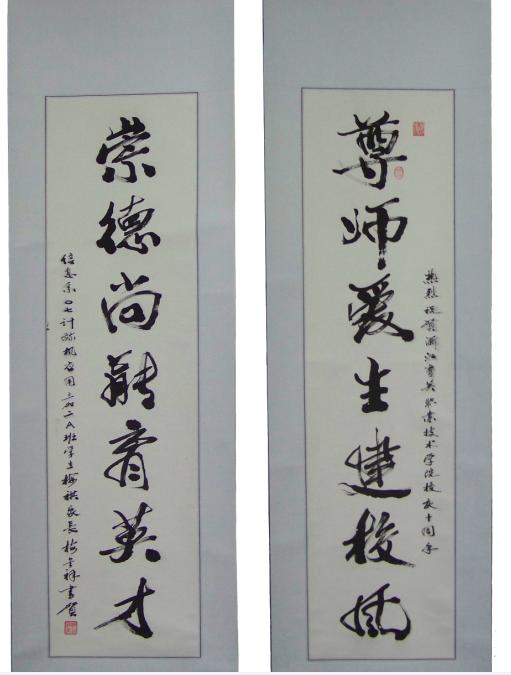 热烈祝贺浙江育英职业技术学院校庆十周年
尊师爱生建校风
崇德尚能育英才
信息系〇七计算机应用三加二A班学生梅祺家长梅金祥书贺